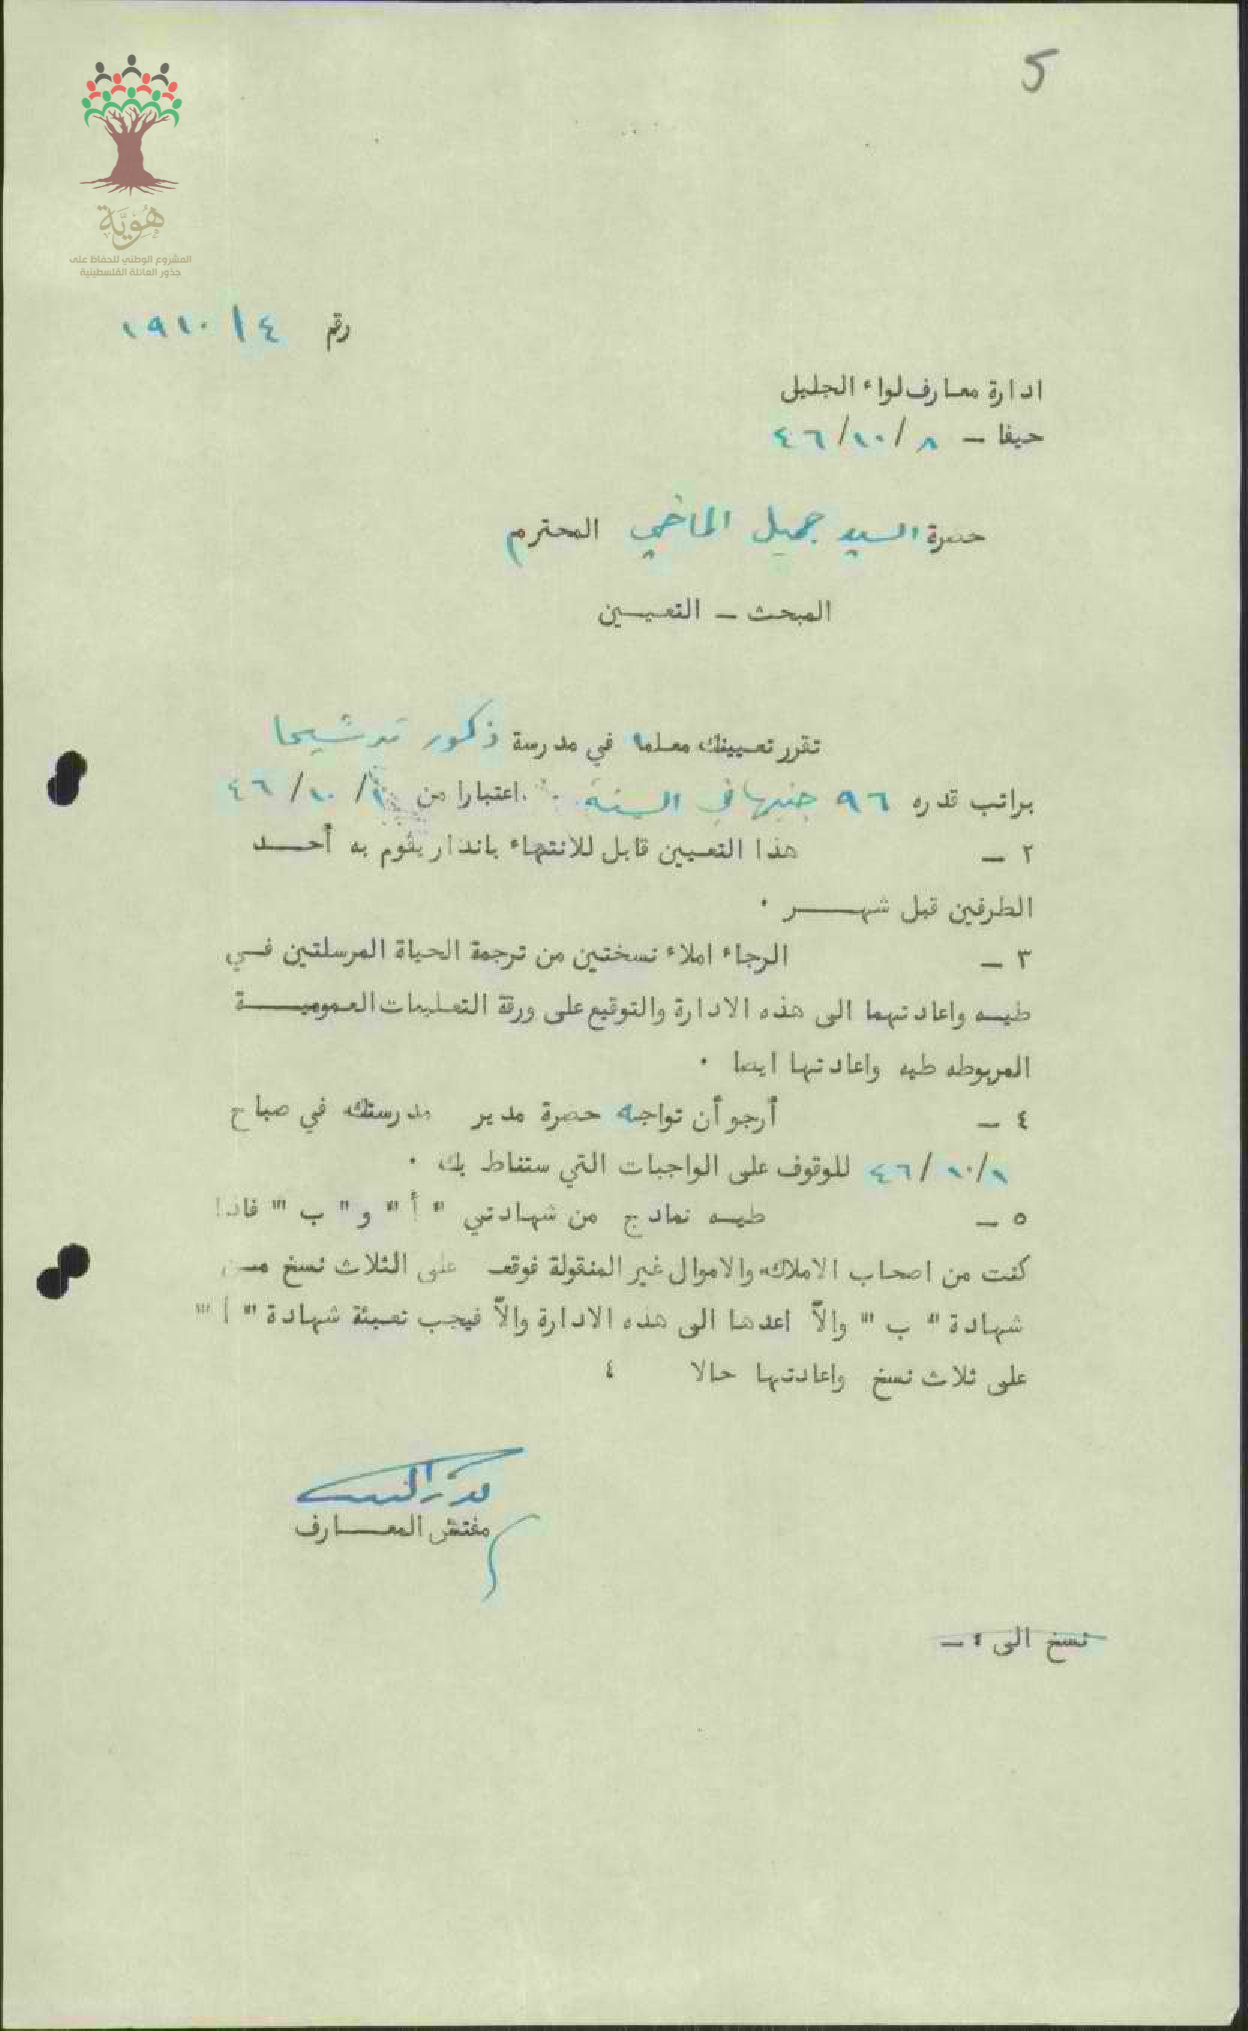 5
هُوِيَّة
المشروع الوطني للحفاظ على
جذور العائلة الفلسطينية
رقم ٤/ ١٩١٠
ادارة معارف لواء الجليل
حيفا – ٨ /١٠/ ٤٦
حضرة السيد جميل الماضي المحترم
المبحث – التعيــين
تقرر تعيينك معلما في مدرسة ذكور ترشيحا
براتب قدره ٩٦ جنيها في السنة اعتبارا من ١/ ١٠/ ٤٦
٢ – هذا التعيين قابل للانتهاء بانذار يقوم به أحــد
الطرفين قبل شهــر ٠
٣ – الرجاء املاء نسختين من ترجمة الحياة المرسلتين فـي
طيــه واعادتهما الى هذه الادارة والتوقيع على ورقة التعليمات العموميــة
المربوطه طيه واعادتها ايضا ٠
٤ – أرجو أن تواجه حضرة مدير مدرستك في صباح
٩/ ١٠/ ٤٦ للوقوف على الواجبات التي ستناط بك ٠
٥ – طيــه نماذج من شهادتي " أ " و " ب " فاذا
كنت من اصحاب الاملاك والاموال غير المنقولة فوقع على الثلاث نسخ مــن
شهادة " ب " والاّ اعدها الى هذه الادارة والاّ فيجب تعبئة شهادة " أ "
على ثلاث نسخ واعادتها حالا ٤
مفتش المعــارف
نسخ الى : –